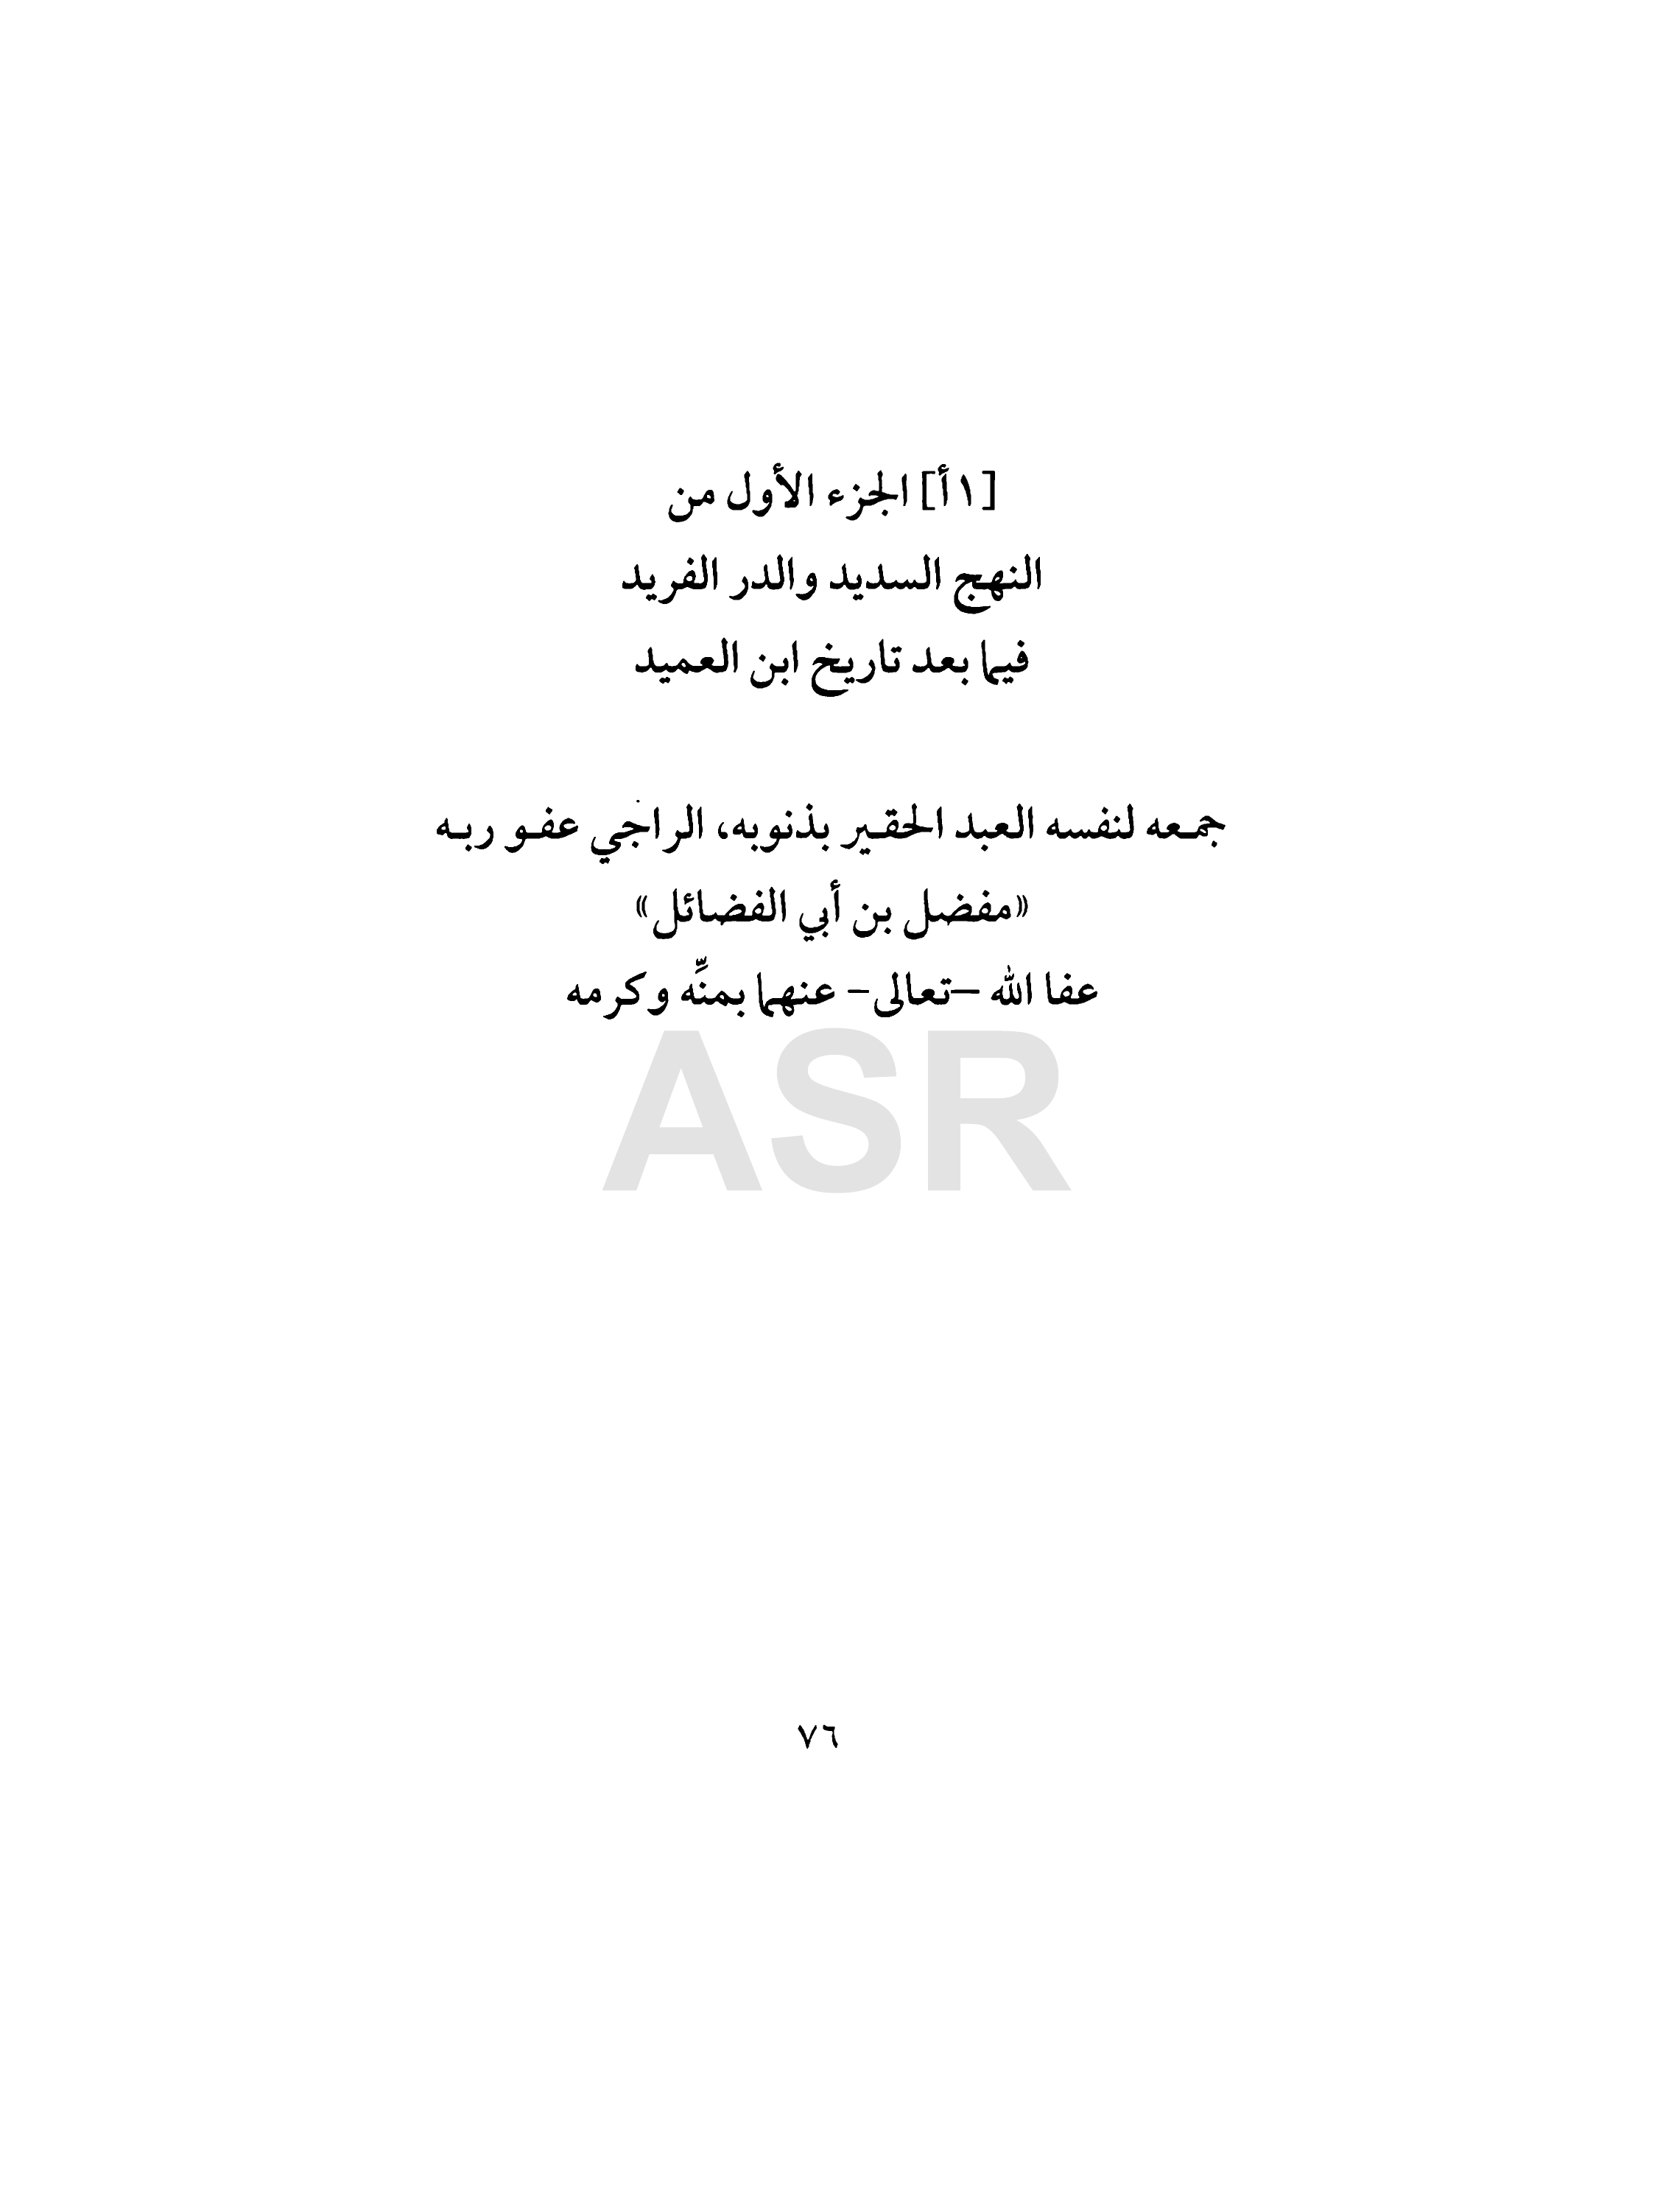 [١أ] الجزء الأول من
النهج السديد والدر الفريد
فيما بعد تاريخ ابن العميد
جمعه لنفسه العبد الحقير بذنوبه، الراجي عفو ربه
«مفضل بن أبي الفضائل»
عفا الله –تعالى- عنهما بمنِّه وكرمه
ASR
٧٦